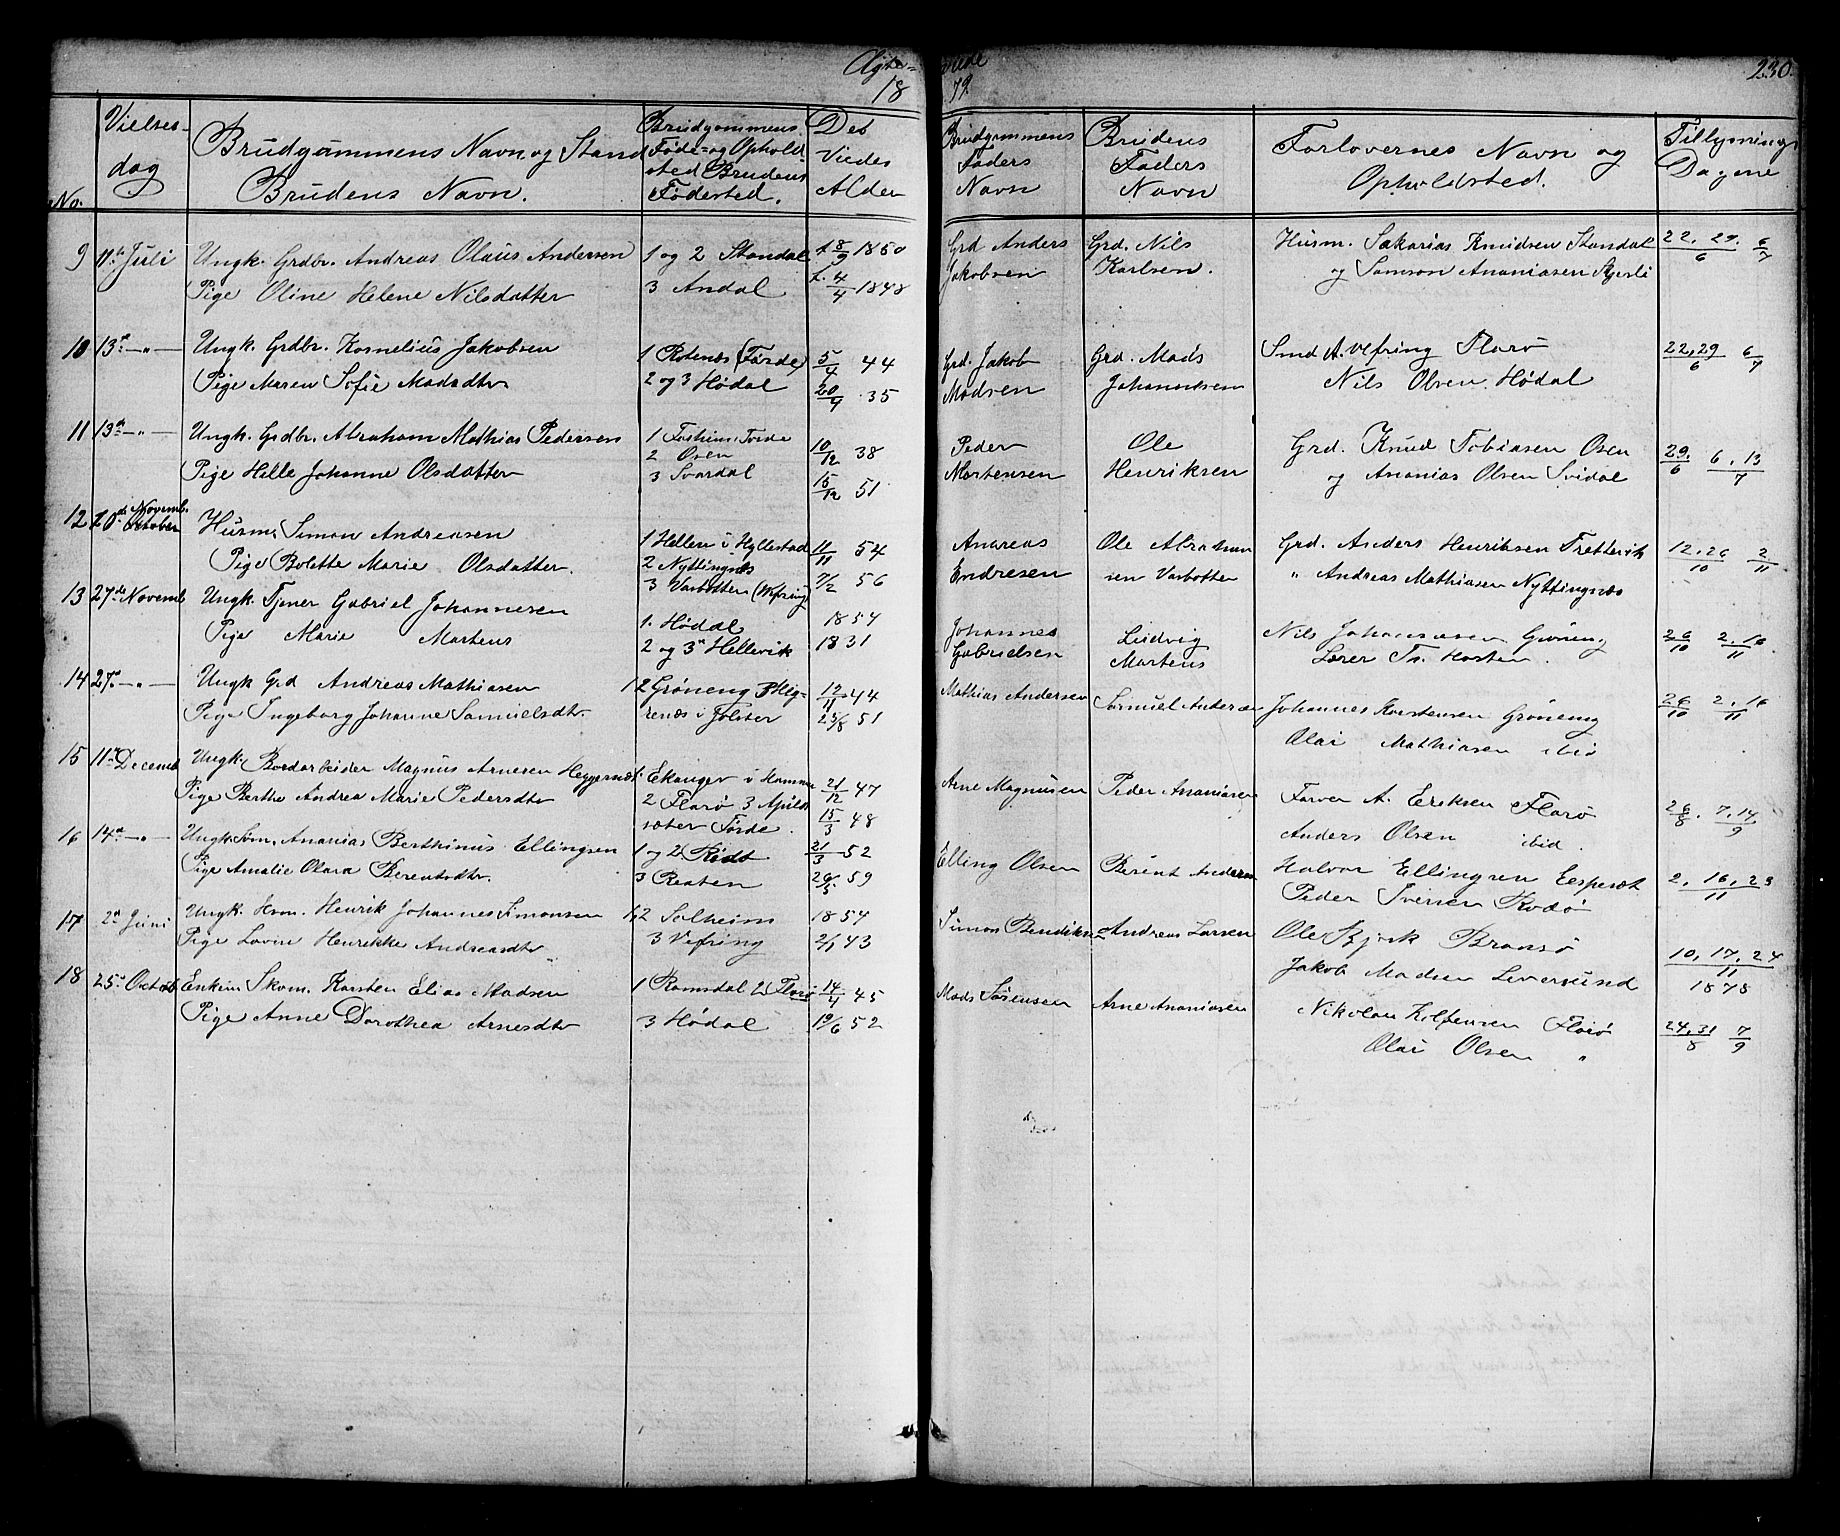 Ægte= viede 230.
18 79.
No. | Vielses-dag | Brudgummens Navn og Stand Brudens Navn. | Brudgommens Føde- og Opholdsted Brudens Fødested. | Det Viedes Alder | Brudgummens Faders Navn | Brudens Faders Navn | Forlovernes Navn og Opholdsted. | Tillysnings Dagene
9 11te Juli Ungk. Grdbr. Andreas Olaus Andersen 1 og 2 Standal f. 8/9 1850 Grd Anders Grd. Nils Husm. Sakarias Knudsen Standal 22. 29./6 6/7
Pige Oline Helene Nilsdatter 3 Andal f. 4/4 1848 Jakobsen Karlsen. og Samson Ananiasen
10 13de -"- Ungk. Grdbr. Kornelius Jakobsen 1 Rotenæs (Førde) 5/4 44 Grd. Jakob Grd. Mads Smd A. Vefring Florø 22, 29/6 6/7
Pige Maren Sofie Madsdtr 2 og 3 Hødal 20/9 35 Madsen Johannesen Nils Olsen Hødal
11 13de -"- Ungk. Grdbr. Abraham Mathias Pedersen 1 Førde 10/12 38 Peder Ole Grd. Knud Tobiasen Osen 29./6 6, 13/7
2 Osen
Pige Helle Johanne Olsdatter 3 Svardal 15/12 51 Mortensen Henriksen og Ananias Olsen Svidal
12 20de Novemb. October Husm. Simon Andreasen 1 Hellen i Hyllestad 11/11 54 Andreas Ole Abraham Grd. Anders Henriksen Tretterik 12, 26/10 2/11
2 Nyttingnæs
Pige Bolette Marie Olsdatter. 3 Varbotten (Vefring) 7/2 56 Endresen sen Varbotten " Andreas Mathiasen Nyttingnæs
13 27de Novemb Ungk. Tjener Gabriel Johannesen 1. Hødal 1854 Johannes Ludvig Nils Johannesen Grøneng 26/10 2. 16/11
Pige Marie Martens 2 og 3 Hellevik 1831 Gabrielsen Martens Lærer Ts. Hosten.
14 27de -"- Ungk Grd Andreas Mathiasen 1 2 Grøneng 3 Helg- 12/11 44 Mathias Andersen Samuel Andersen Johannes Karstensen Grøneng 26/10 2. 16/11
Pige Ingeborg Johanne Samuelsdtr. renæs i Jølster 23/8 51 Olai Mathiasen ibid
15 11te Decemb Ungk. Bordarbeider Magnus Arnesen Heggernæs 1. Ekanger i Hammer 21/12 47 Arne Magnusen Peder Ananiasen Farver A. Eriksen Florø 26/8. 7, 14,/9
Pige Berthe Andrea Marie Pedersdtr 2 Florø 3 Apildsæter Førde. 15/3 48 Anders Olsen ibid.
16 14de -"- Ungk. Søm. Ananias Berthinus Ellingsen 1 og 2 21/3 52 Elling Olsen Berent Andersen Halvor Ellingsen 2, 16, 23/11
Pige Amalie Olava Berentsdtr. 3 Reaten 26/5 59 Peder Iversen Rodø
17 2de Juni Ungk. Hsm. Henrik Johannes Simonsen 1, 2 Solheim 1854 Simon Bendiksen Andreas Larsen Ole Bjørk Bransø 10, 17, 24/11 1878
Pige Lovine Henrikke Andreasdtr 3 Vefring 2/1 43 Jakob Madsen Leversund
18 25de Octob Enkem. Skom. Karsten Elias Madsen 1 Ramsdal 2 Florø 14/4 45 Mads Sørensen Arne Ananiasen Nikolai Florø 24, 31/8 7/9
Pige Anne Dorothea Arnesdtr 3 Hødal 19/6 52 Olai Olsen "